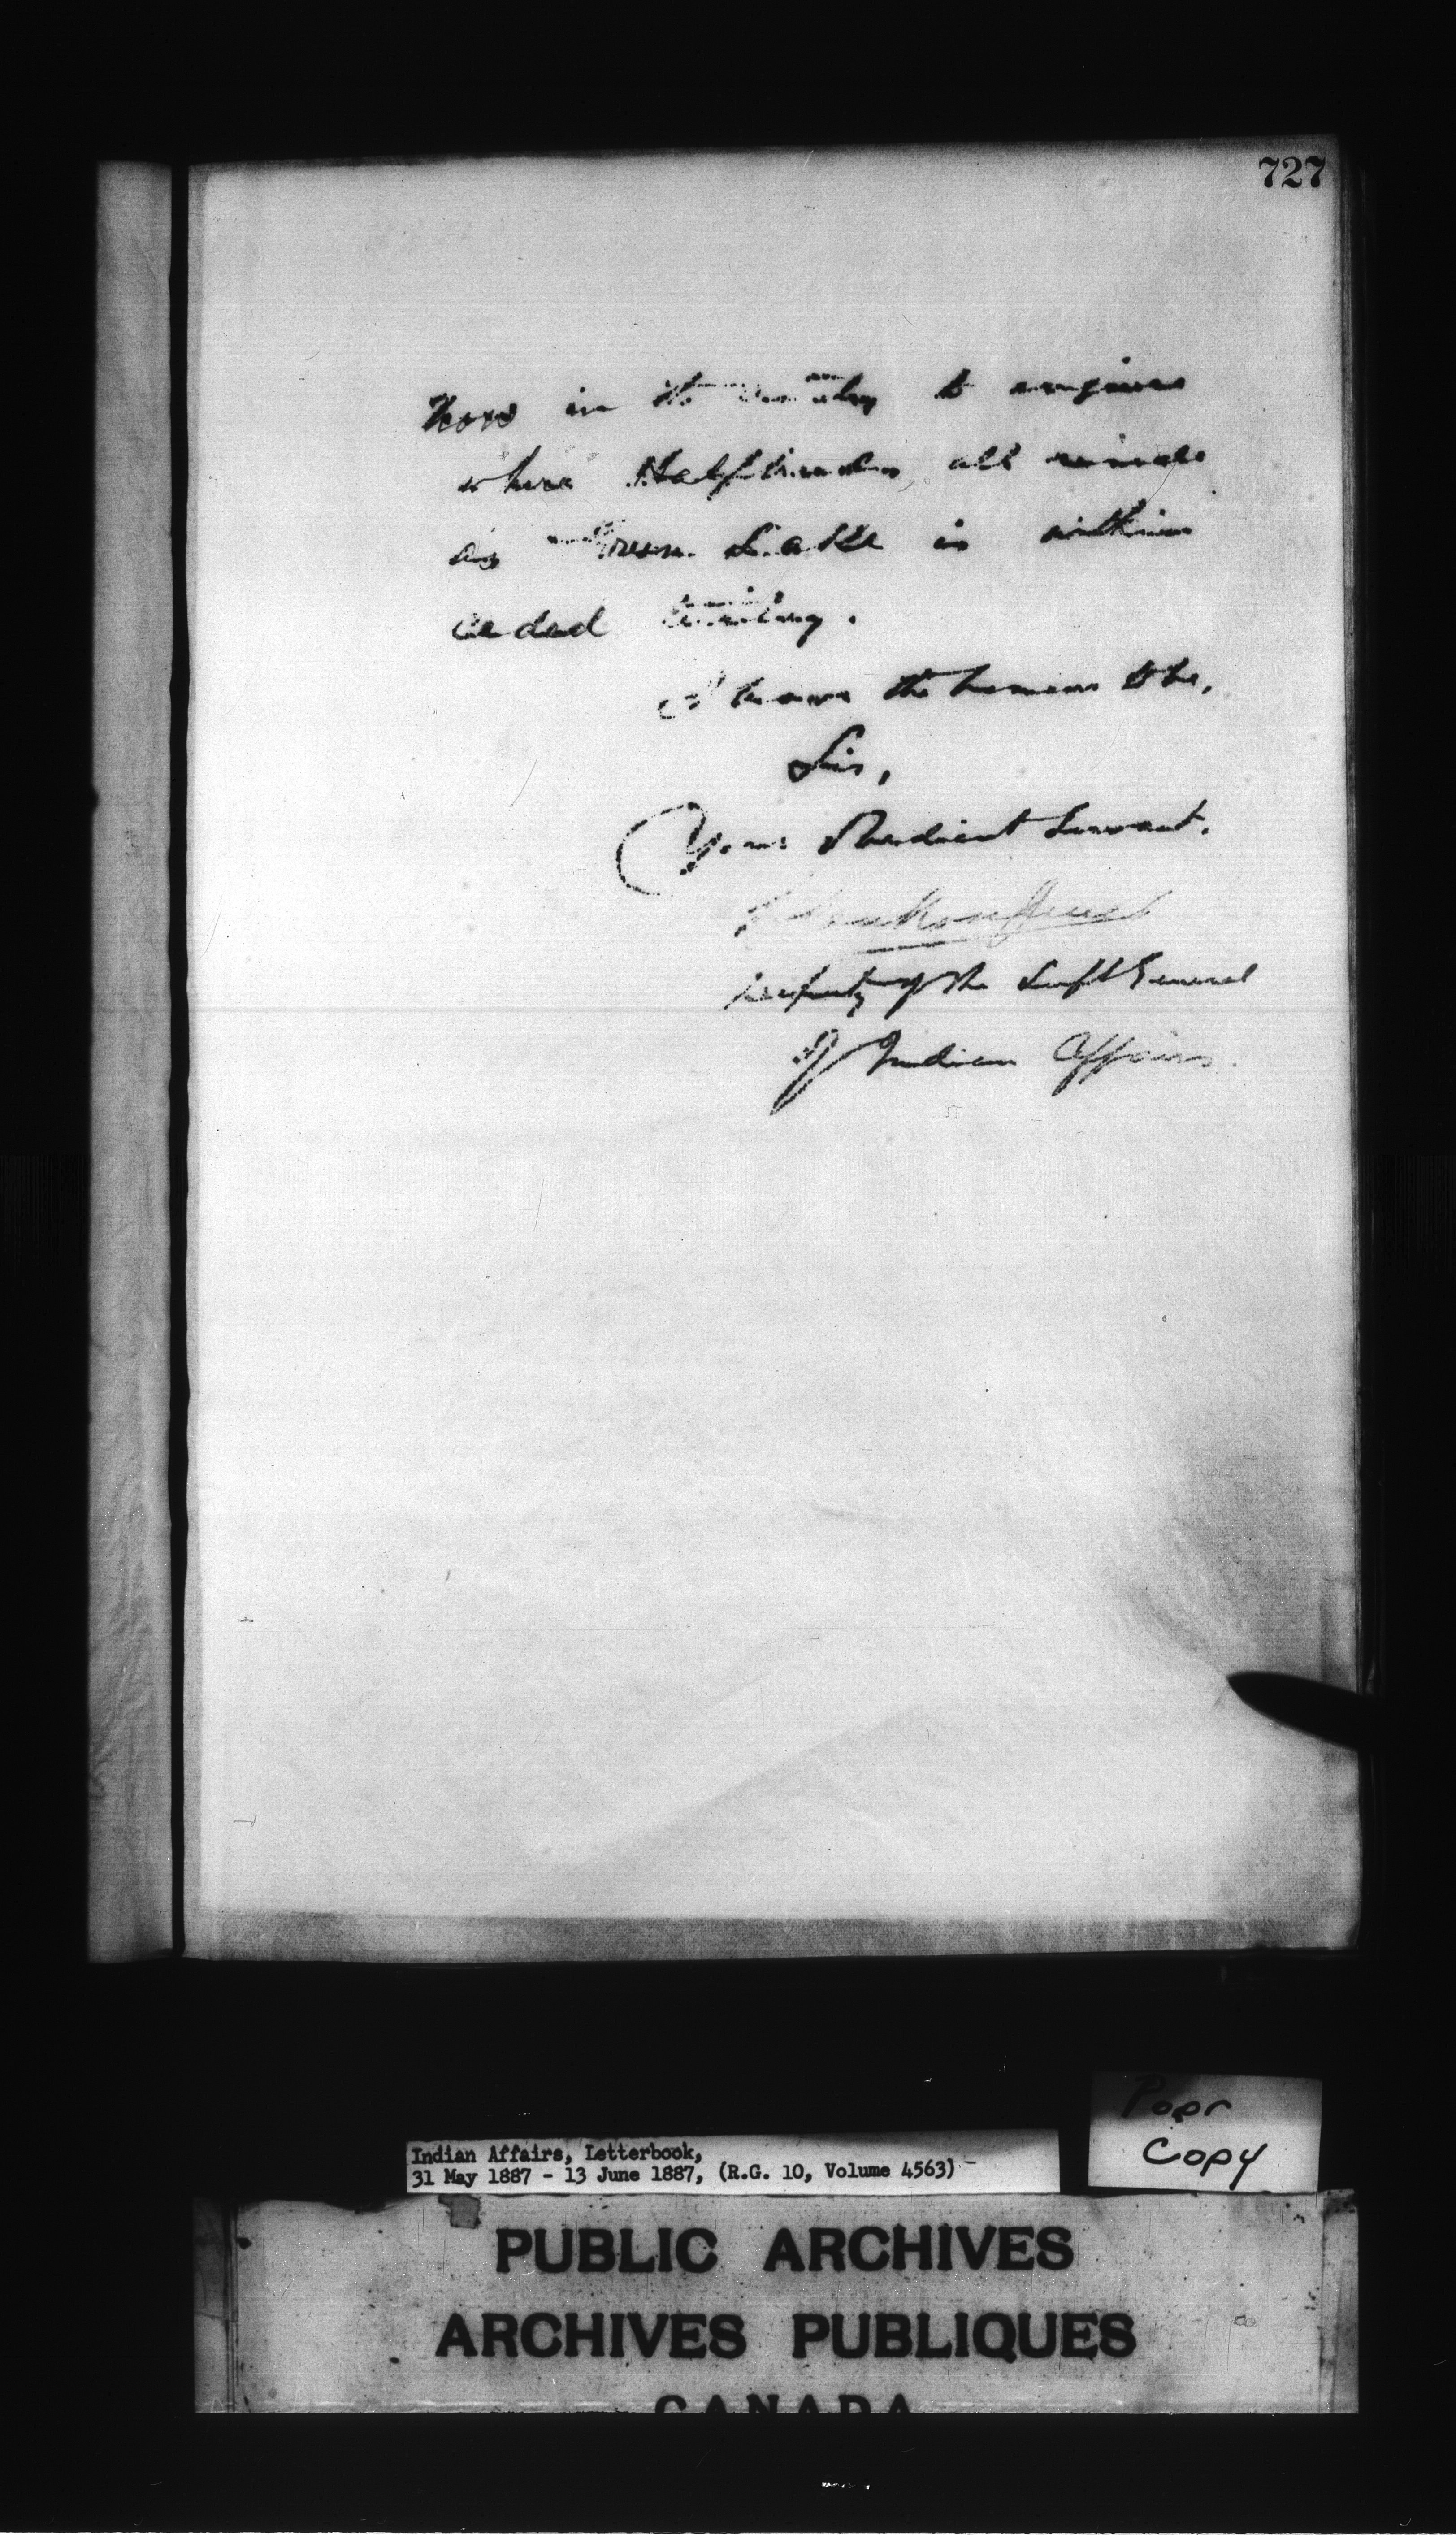 727
now in the country to enquire
where Halfbreeds all reside
as Green Lake is within
ceded territory.
I have the honour to be,
Sir,
Your Obedient Servant.
L. Vankoughnet
Deputy of the Supt General
of Indian Affairs.
Poor
Copy
Indian Affairs, Letterbook,
31 May 1887 - 13 June 1887, (R.G. 10, Volume 4563)
PUBLIC ARCHIVES
ARCHIVES PUBLIQUES
CANADA